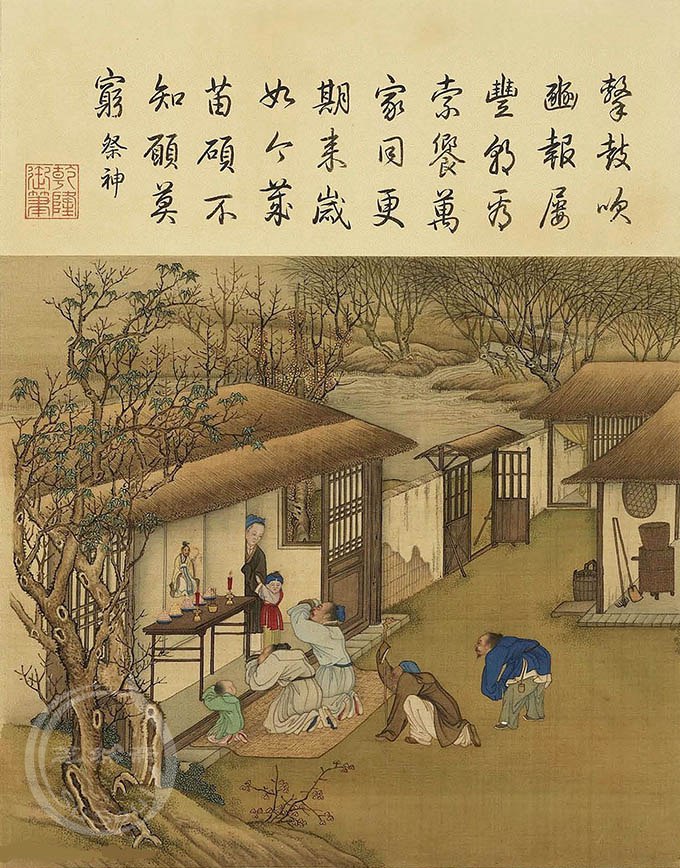 擊鼓吹
豳報屢
豐為
索饗萬
家同更
期来歲
如今歲
苗碩不
知願莫
窮
祭神
乾隆
御筆